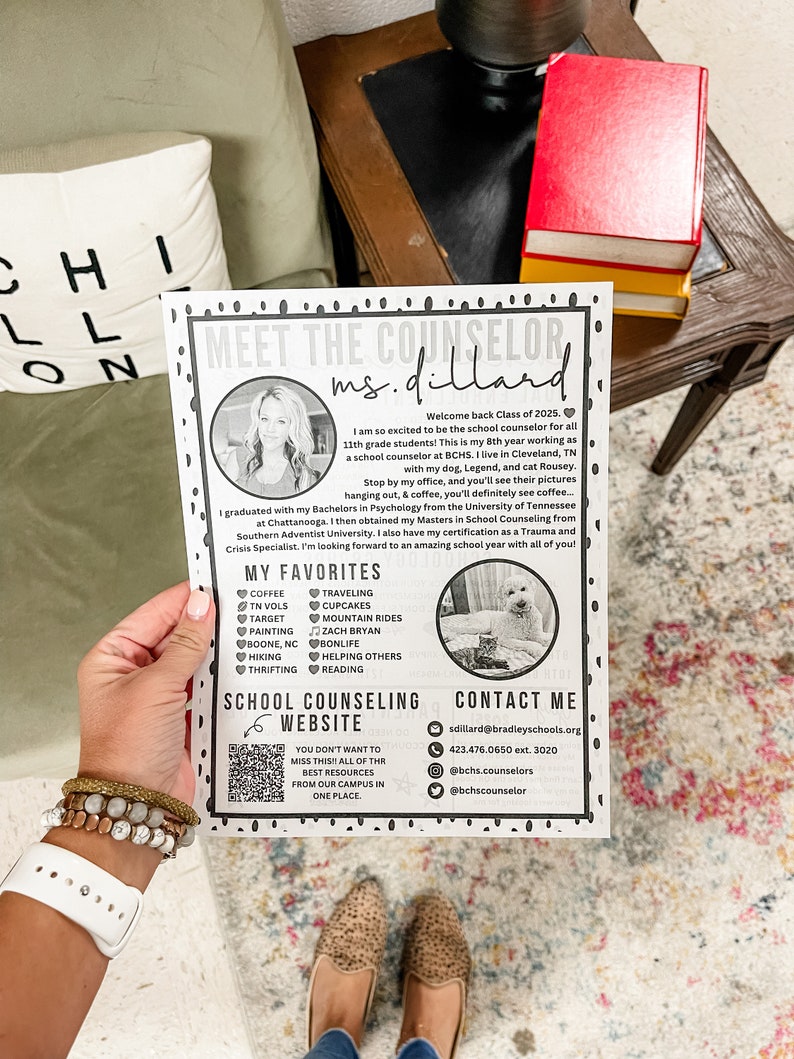 CHI
LL
ON
MEET THE COUNSELOR
ms. dillard
Welcome back Class of 2025.
I am so excited to be the school counselor for all
11th grade students! This is my 8th year working as
a school counselor at BCHS. I live in Cleveland, TN
with my dog, Legend, and cat Rousey.
Stop by my office, and you'll see their pictures
hanging out, & coffee, you'll definitely see coffee...
I graduated with my Bachelors in Psychology from the University of Tennessee
at Chattanooga. I then obtained my Masters in School Counseling from
Southern Adventist University. I also have my certification as a Trauma and
Crisis Specialist. I'm looking forward to an amazing school year with all of you!
MY FAVORITES
COFFEE
TN VOLS
TARGET
PAINTING
BOONE, NC
HIKING
THRIFTING
TRAVELING
CUPCAKES
MOUNTAIN RIDES
ZACH BRYAN
BONLIFE
HELPING OTHERS
READING
SCHOOL COUNSELING
WEBSITE
YOU DON'T WANT TO
MISS THIS!! ALL OF THR
BEST RESOURCES
FROM OUR CAMPUS IN
ONE PLACE.
CONTACT ME
sdillard@bradleyschools.org
423.476.0650 ext. 3020
@bchs.counselors
@bchscounselor